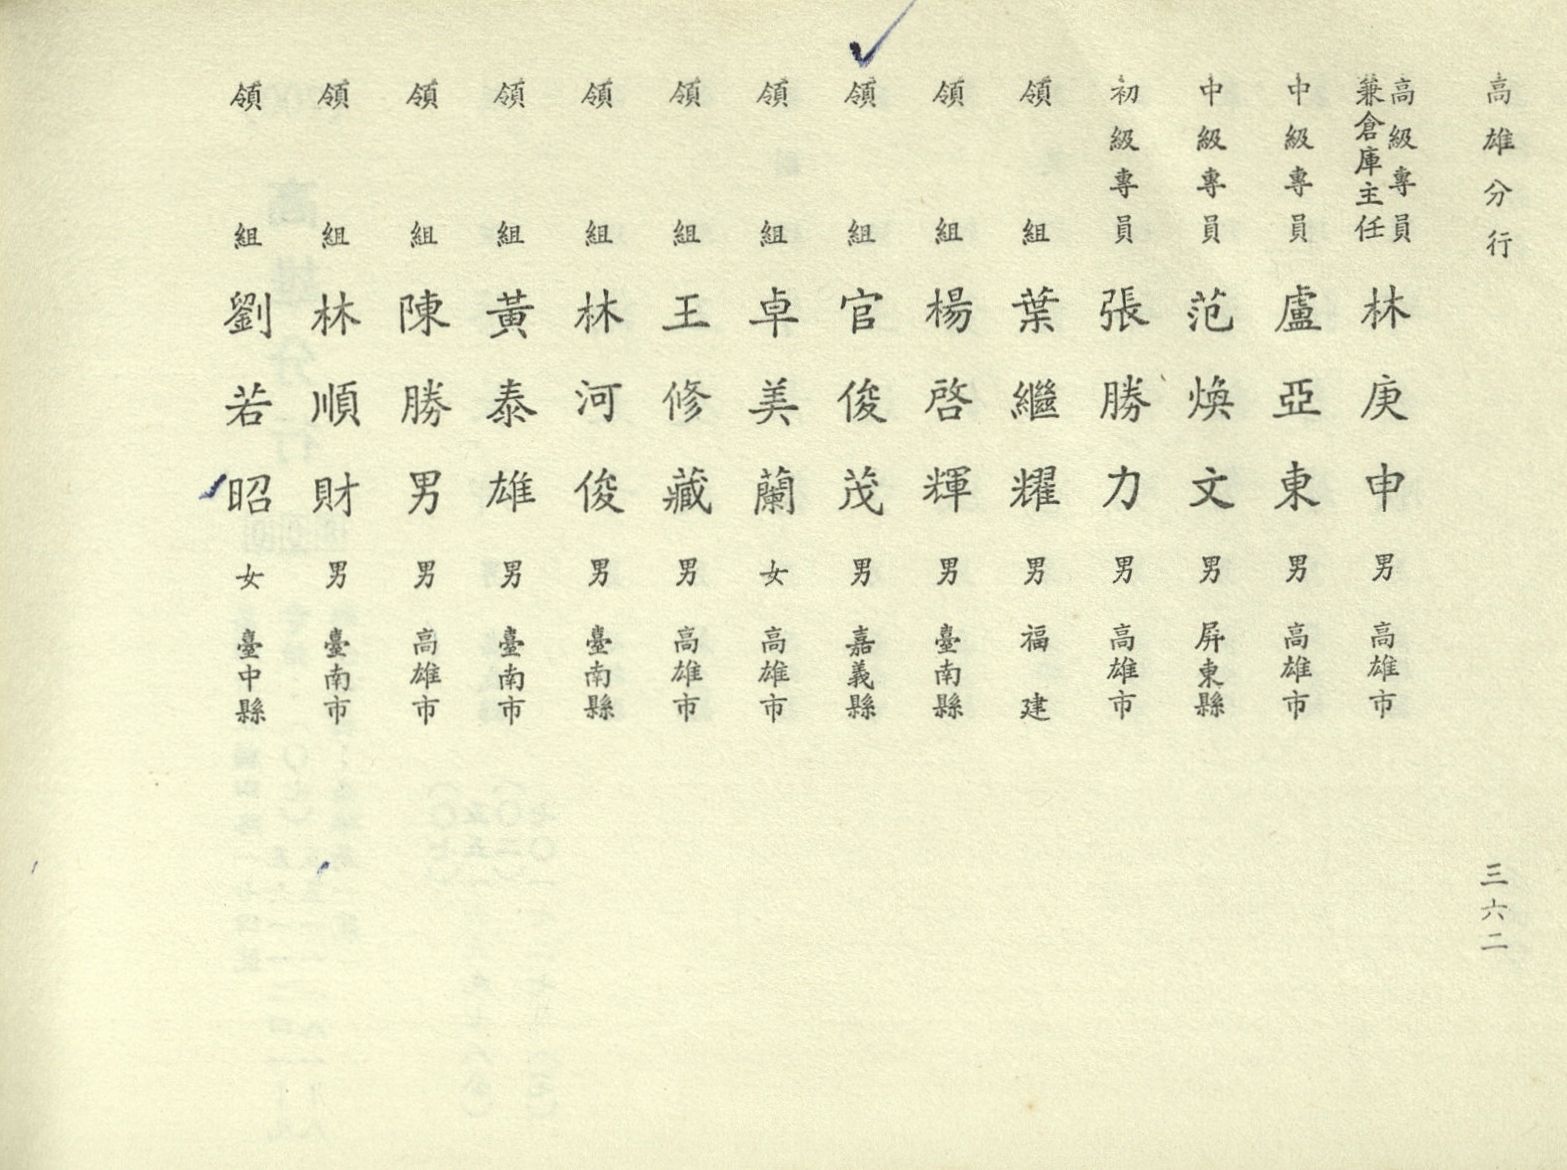 高雄分行
三六二
高級專員兼倉庫主任 林庚申 男 高雄市
中級專員 盧亞東 男 高雄市
中級專員 范煥文 男 屏東縣
初級專員 張勝力 男 高雄市
領組 葉繼耀 男 福建
領組 楊啓輝 男 臺南縣
領組 官俊茂 男 嘉義縣
領組 卓美蘭 女 高雄市
領組 王修藏 男 高雄市
領組 林河俊 男 臺南縣
領組 黃泰雄 男 臺南市
領組 陳勝男 男 高雄市
領組 林順財 男 臺南市
領組 劉若昭 女 臺中縣